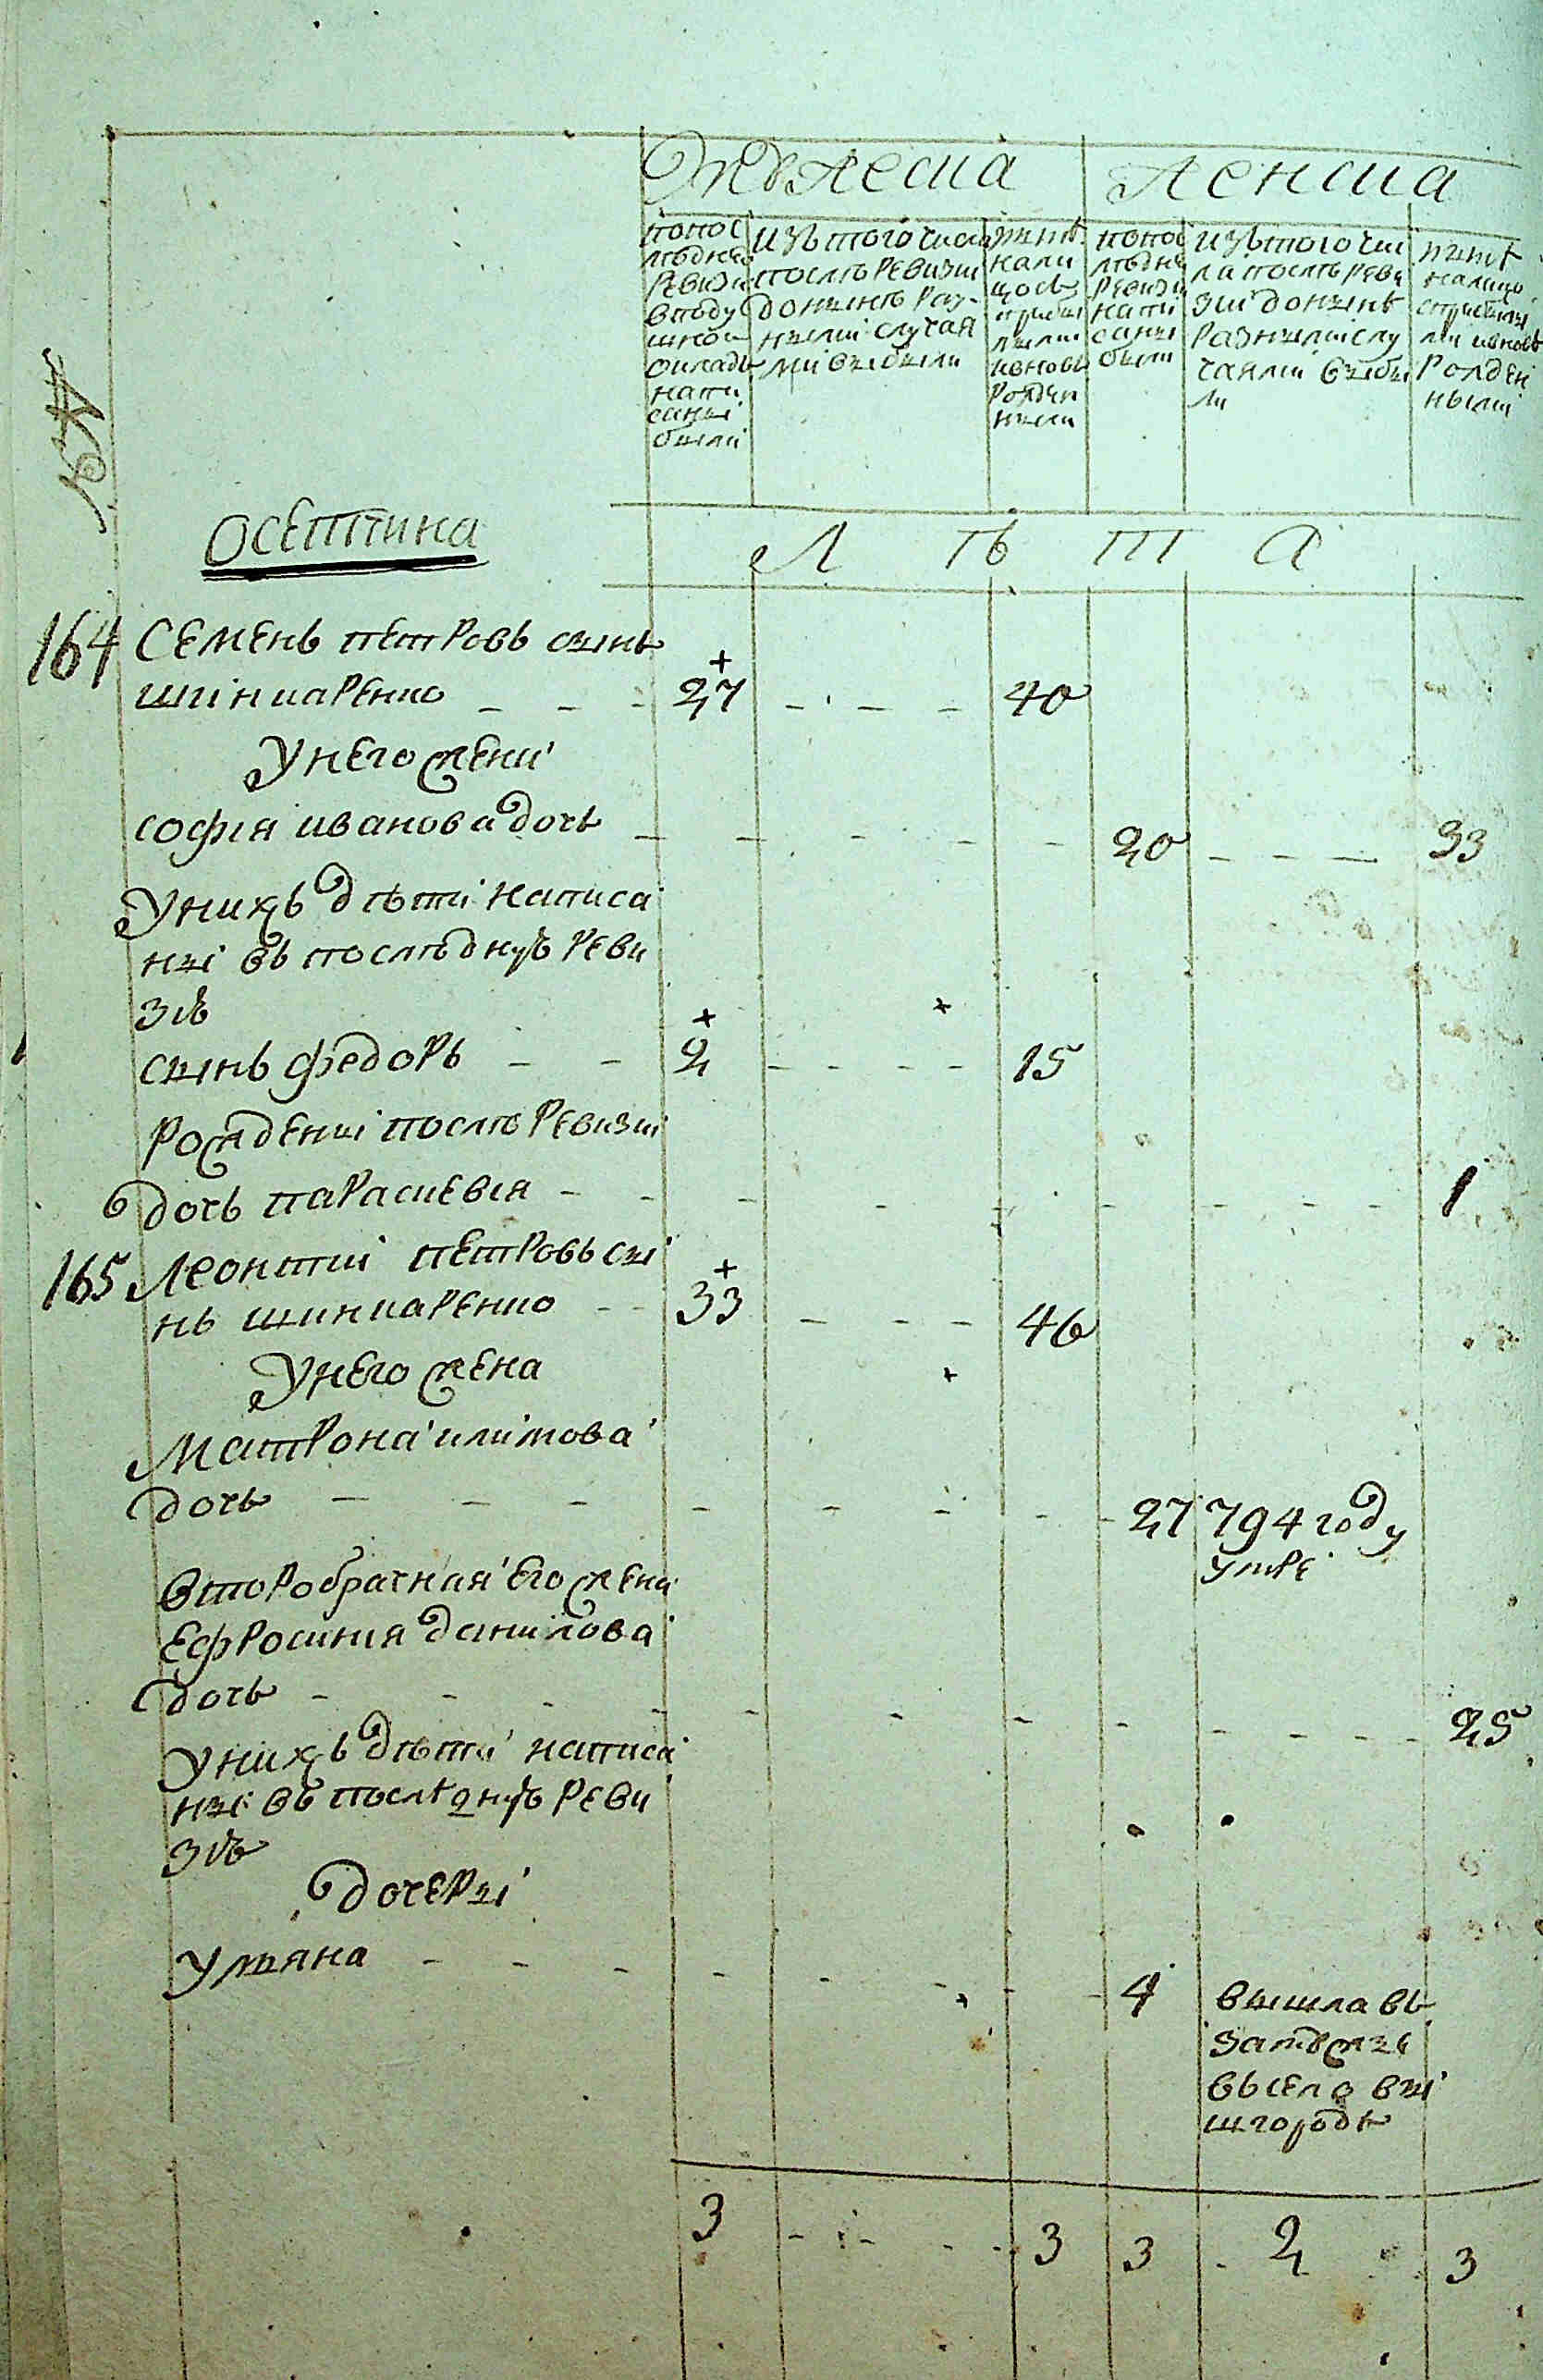 Мужеска
Женска
попос
лѣднеи
ревизи
вподу
шном
окладѣ
напи
саныі
были
изътого числа
послѣ ревизии
донынѣ раз-
ными случая
мй выбыли
нынѣ
нали
цосъ
прибы
лыми
ивновь
рожден
ными
попос
лѣднѣ
ревизи
напи
саны
были
изътого чис
ла послѣ реви
зіи донынѣ
разными слу
чаями выбы
ли
нынѣ
налицо
сприбылы
ми ивновь
рожден
ными
осептина
Л ѣ т а
164 Семенъ петровъ сынъ
шінкаренко - - - 27 - - - 40
Унего жени
софія иванова дочь - - - - - 20 - - - 33
Унихъ дѣти написа
ныі въ послѣднуѣ реви
зіѣ
сынъ федоръ - - 2 - - - - 15
рожденыі послѣ ревизиі
дочь параскевія - - - - - - - - 1
165 Леонтій петровъ сы
нъ шинкаренко - - 33 - - - 46
Унего жена
Матрона климова
дочь - - - - - - - - 27 794 году
умре
второбрачная его жена
Ефросинія данилова
дочь - - - - - - - - - - - 25
Унихъ дѣти написа
ныі въ послѣднуѣ реви
зіѣ
дочерыі
Уляна - - - - - - - - 4 вышла въ
замужъ
въсело вы
шгородъ
3 - - - - 3 3 - 2 3